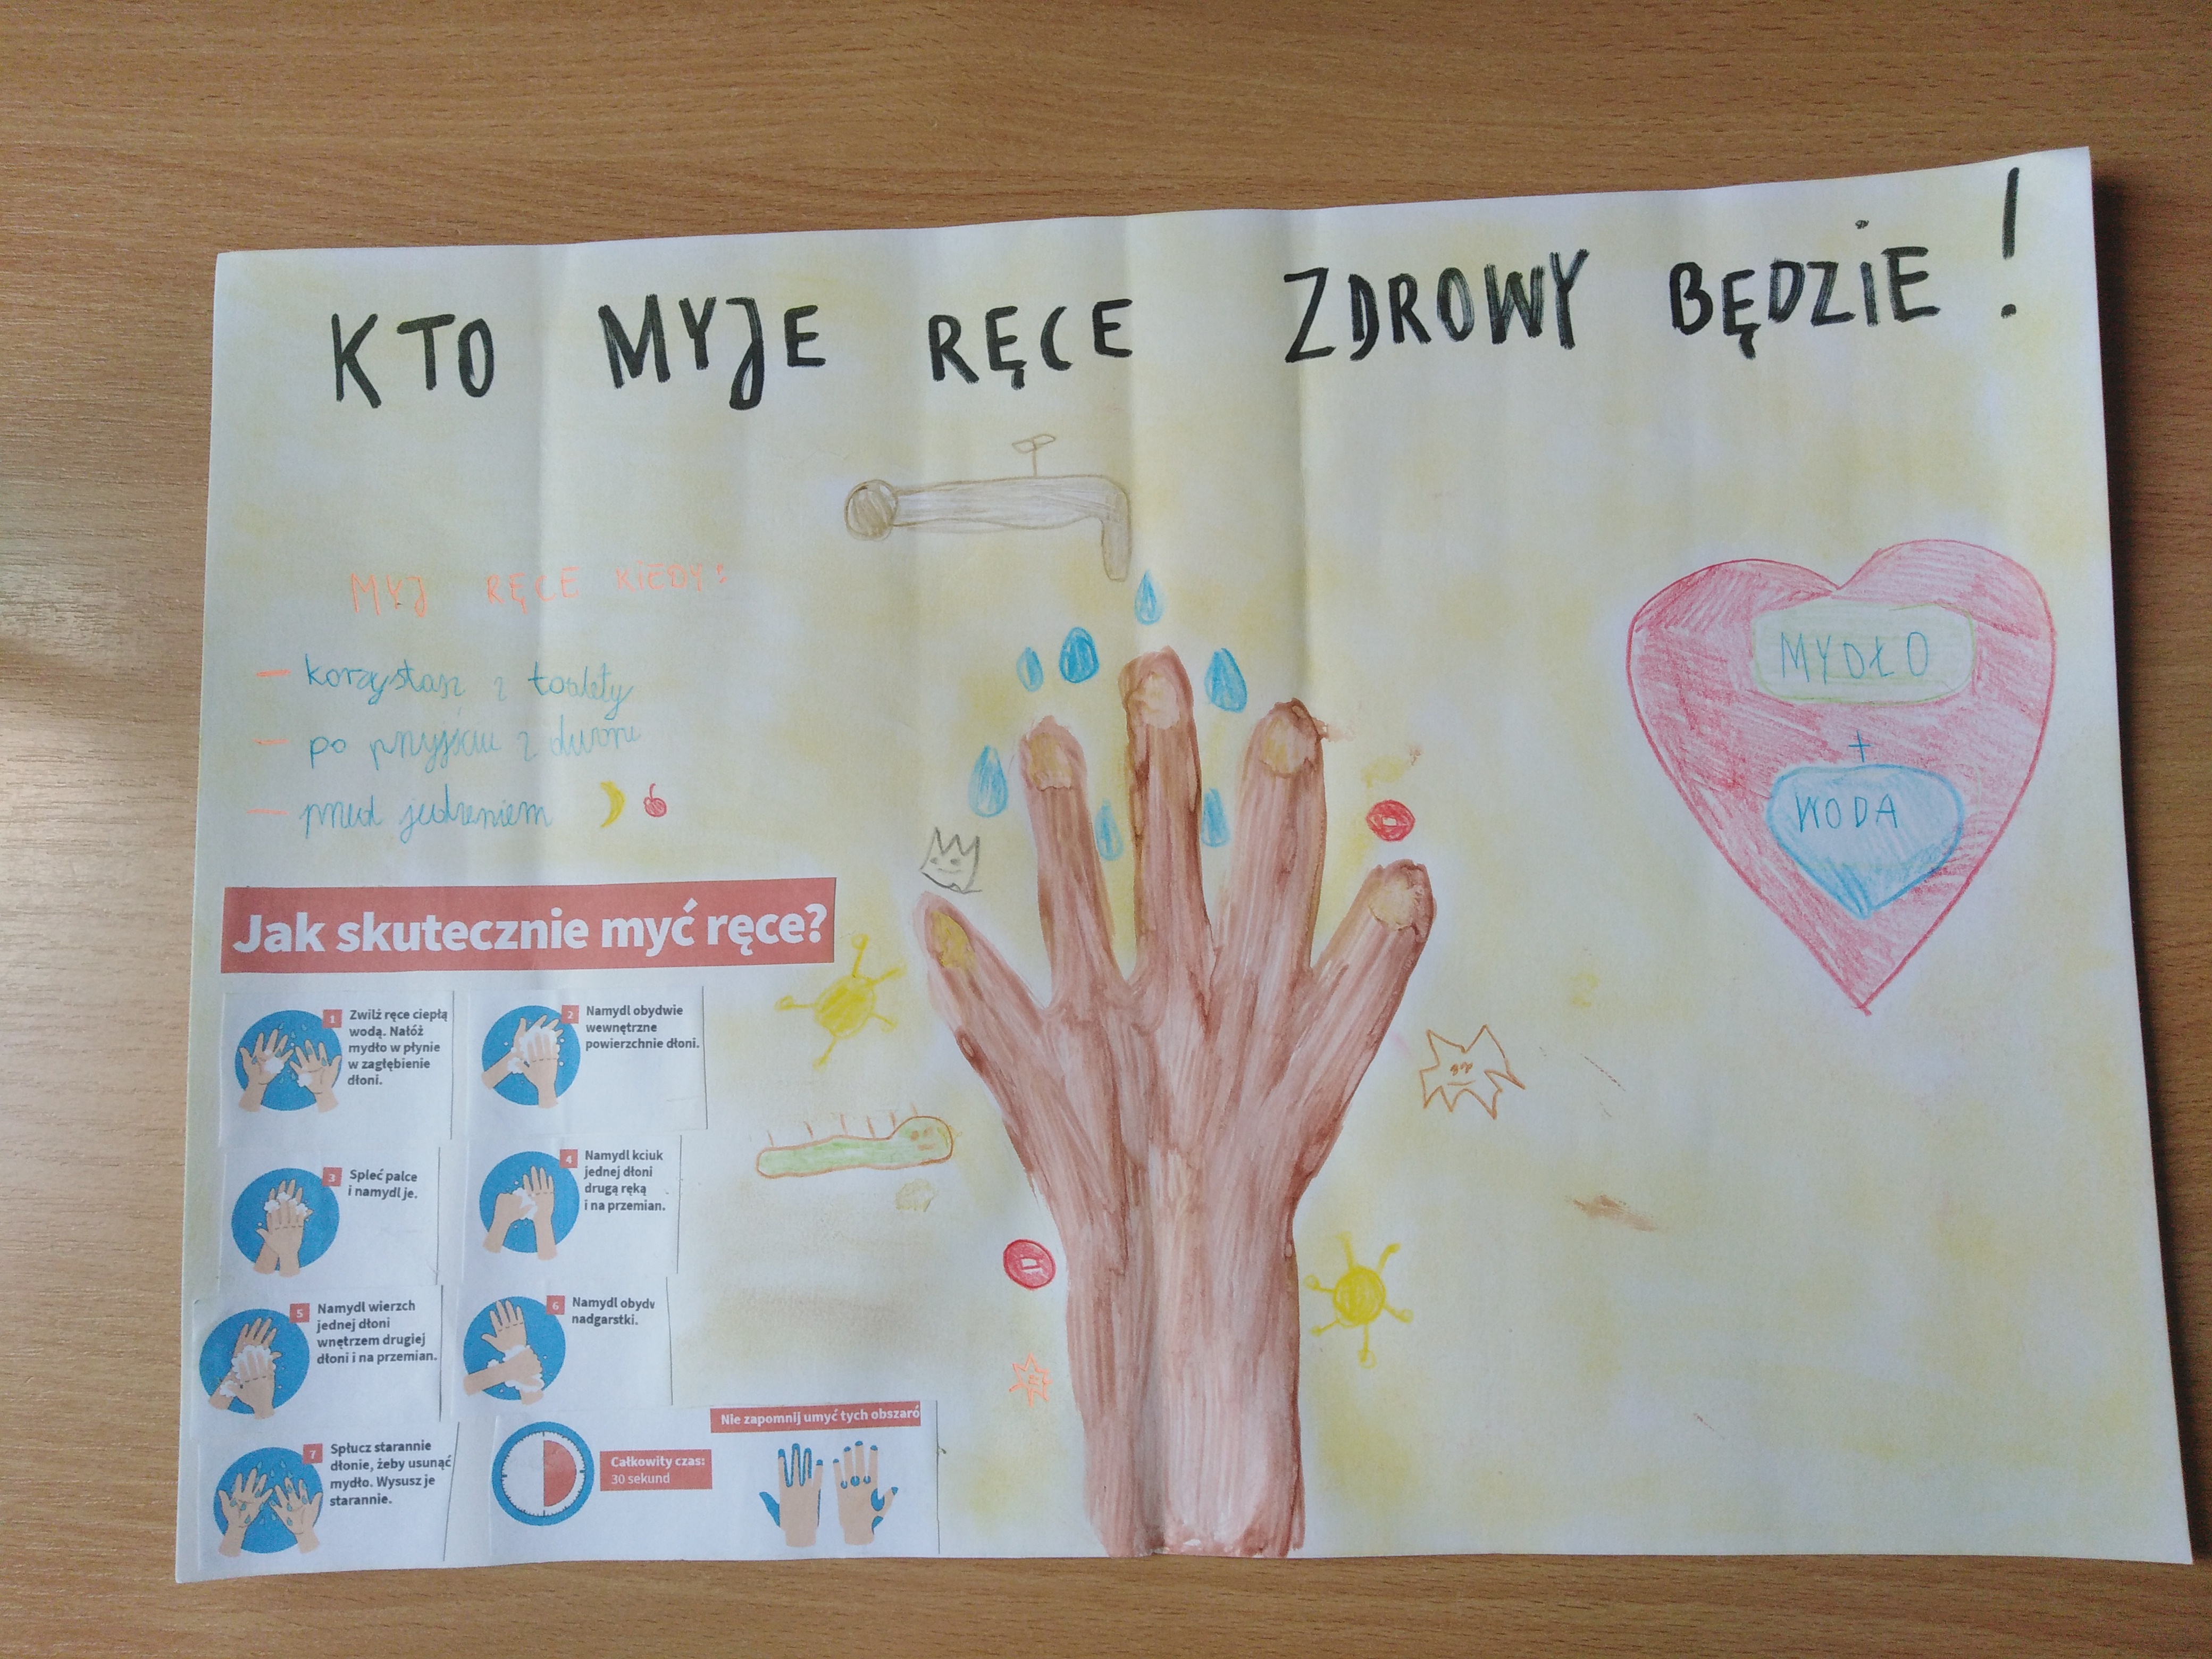 KTO MYJE RĘCE ZDROWY BĘDZIE!
MYJ RĘCE KIEDY:
- korzystasz z toalety
- po przyjściu z dworu
- przed jedzeniem
MYDŁO
+
WODA
Jak skutecznie myć ręce?
1
Zwilż ręce ciepłą
wodą. Nałóż
mydło w płynie
w zagłębienie
dłoni.
2
Namydl obydwie
wewnętrzne
powierzchnie dłoni.
3
Spleć palce
i namydl je.
4
Namydl kciuk
jednej dłoni
drugą ręką
i na przemian.
5
Namydl wierzch
jednej dłoni
wnętrzem drugiej
dłoni i na przemian.
6
Namydl obydw
nadgarstki.
7
Spłucz starannie
dłonie, żeby usunąć
mydło. Wysusz je
starannie.
Całkowity czas:
30 sekund
Nie zapomnij umyć tych obszaró